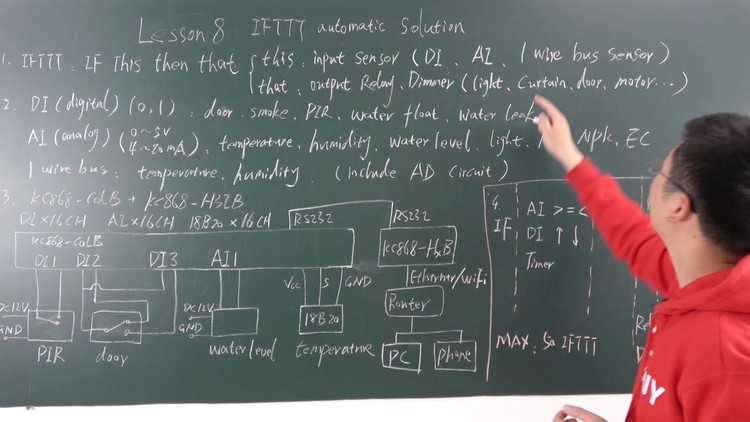 Lesson 8 IFTTT automatic Solution
1. IFTTT. IF This then that { this: input Sensor (DI、AI、1 wire bus sensor)
that: output Relay、Dimmer (light、Curtain、door、motor...)
2. DI (digital) (0,1): door、smoke、PIR、water float、water leak
AI (analog) (0~5V 4~20mA): temperature、humidity、water level、light、 NPK、EC
1 wire bus: temperature、humidity (include AD Circuit)
3. KC868-COLB + KC868-H32B
DI×16CH AI×16CH 18B20×16CH
RS232 RS232
KC868-COLB
KC868-HxB
DI1 DI2 DI3 AI1
Vcc S GND
Ethernet/wifi
DC12V
GND
DC12V
GND
18B20
Router
PIR door water level temperature
PC phone
4.
IF
AI >=<
DI ↑ ↓
Timer
MAX: 50 IFTTT